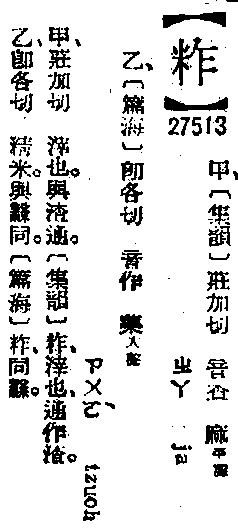 【𥹁】
27513
甲、〔集韻〕莊加切 音查 麻平聲
ㄓㄚ ja
乙、〔篇海〕卽各切 音作 藥入聲
ㄗㄨㄛˋ tzuoh
甲、莊加切 滓也。與渣通。〔集韻〕𥹁、滓也、通作渣。
乙、卽各切 精米。與糳同。〔篇海〕𥹁、同糳。